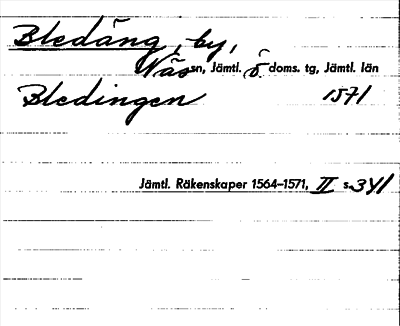 Bledäng, by,
Näs sn, Jämtl. ö doms. tg, Jämtl. län
Bledingen 1571
Jämtl. Räkenskaper 1564–1571, II s. 341